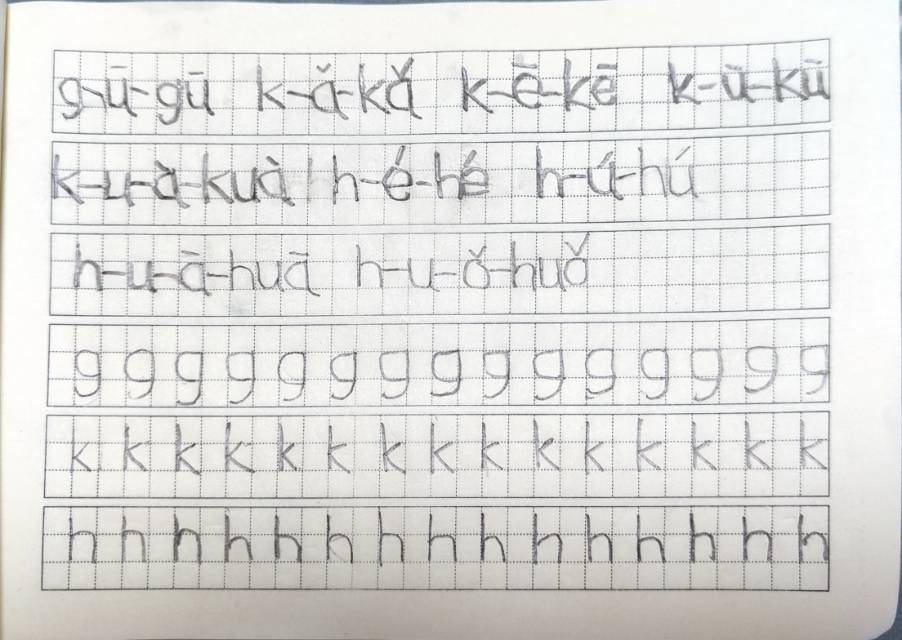 g-ū-gū k-ǎ-kǎ k-ē-kē k-ū-kū
k-u-à-kuà h-é-hé h-ú-hú
h-u-ā-huā h-u-ǒ-huǒ
g g g g g g g g g g g g g g g
k k k k k k k k k k k k k k k
h h h h h h h h h h h h h h h